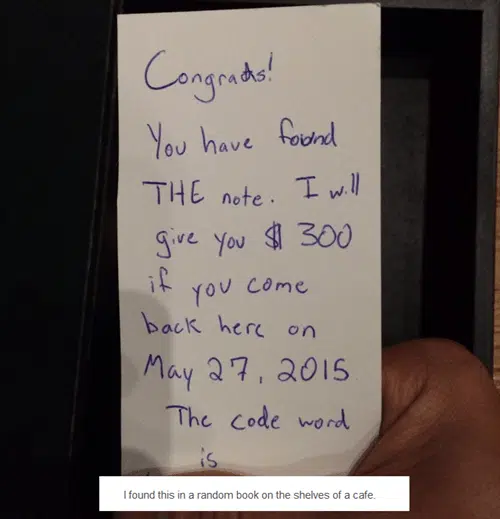 Congrats!
You have found
THE note. I will
give you $300
if you come
back here on
May 27, 2015
The code word
is
I found this in a random book on the shelves of a cafe.